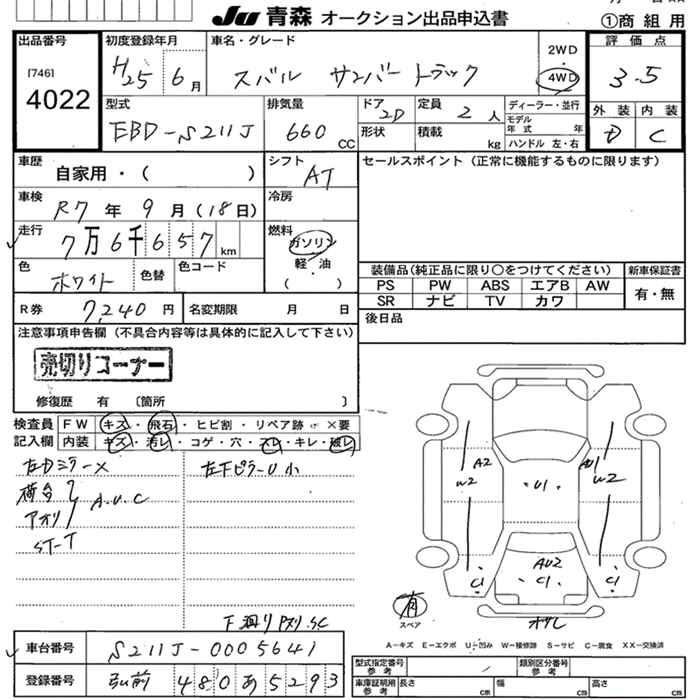 Ju 青森 オークション出品申込書
①商 組 用
出品番号
[746]
4022
初度登録年月
H25年 6月
車名・グレード
スバル サンバートラック
2WD
・
4WD
評価点
3.5
外装 内装
D C
型式
EBD-S211J
排気量
660 CC
ドア
2D
定員
2人
形状
積載
kg
ディーラー・並行
モデル年式 年
ハンドル 左・右
車歴
自家用・( )
シフト
AT
セールスポイント(正常に機能するものに限ります)
車検
R7年 9月(18日)
冷房
走行
7万6千657km
燃料
ガソリン
軽・油
( )
色
ホワイト
色替
色コード
装備品(純正品に限り○をつけてください)
新車保証書
PS PW ABS エアB AW
SR ナビ TV カワ
有・無
R券
7,240円
名変期限 月 日
後日品
注意事項申告欄(不具合内容等は具体的に記入して下さい)
売切りコーナー
修復歴 有 〔箇所 〕
検査員記入欄
FW キズ・飛石・ヒビ割・リペア跡・×要
内装 キズ・汚レ・コゲ・穴・スレ・キレ・破レ
左Dミラー×
左FピラーU小
荷台
アオリ
A.U.C
ST-T
A2
W2
U1
AU1
W2
AU2
C1
C1
C1
有
スペア
A－キズ E－エクボ U－凹み W－補修跡 S－サビ C－腐食 XX－交換済
車台番号
S211J-0005641
登録番号
弘前 480あ5293
型式指定番号
参考
類別区分番号
参考
車庫証明記載
参考
長さ cm
幅 cm
高さ cm